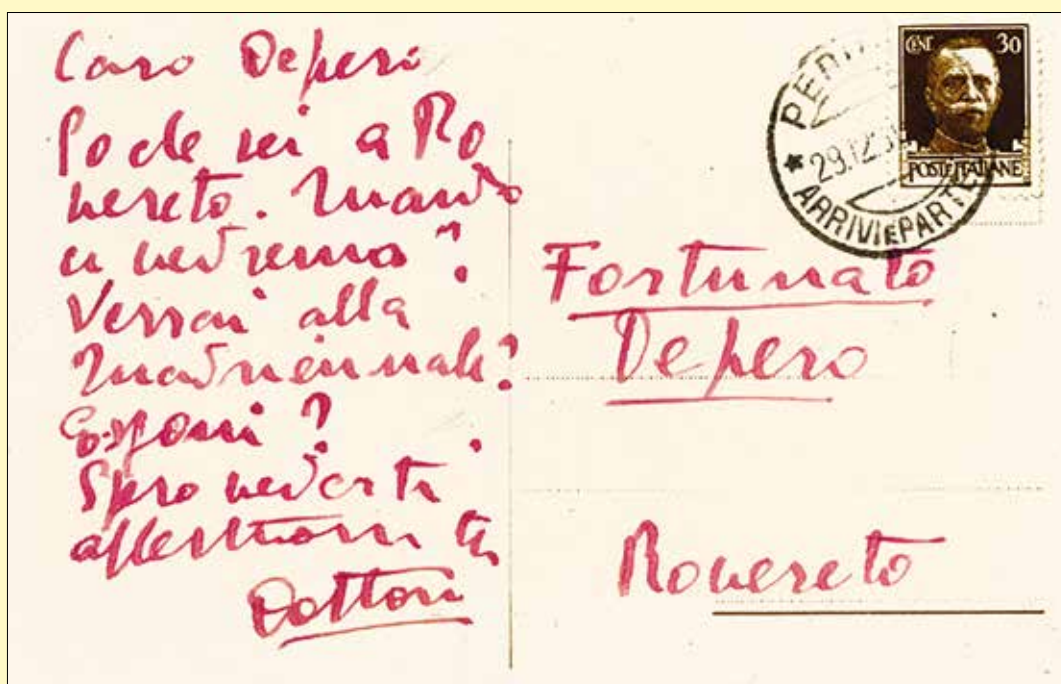 Caro Depero
So che sei a Ro
vereto. Quando
ci vedremo?
Verrai alla
Quadriennale?
Esponi?
Spero vederti
affettuosità
Dottori
CENT. 30
POSTE ITALIANE
29.12.3
ARRIVI E PARTE
Fortunato
Depero
Rovereto